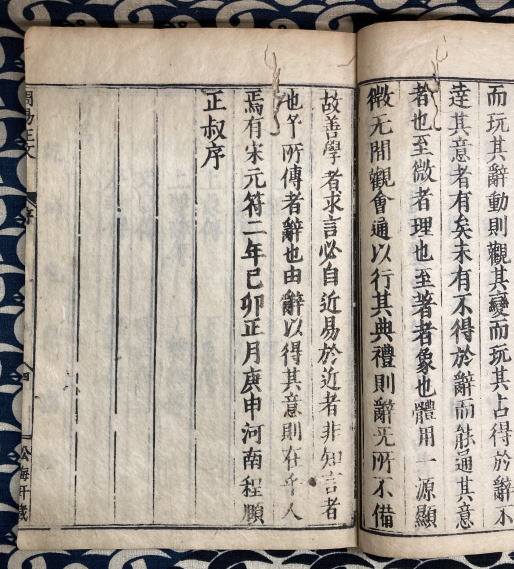 而玩其辭動則觀其變而玩其占得於辭不
達其意者有矣未有不得於辭而能通其意
者也至微者理也至著者象也體用一源顯
微无間觀會通以行其典禮則辭无所不備
故善學者求言必自近易於近者非知言者
也予所傳者辭也由辭以得其意則在乎人
焉有宋元符二年己卯正月庚申河南程頤
正叔序
四